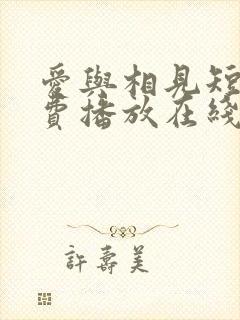 愛與相見短
費播放在綫
許壽美